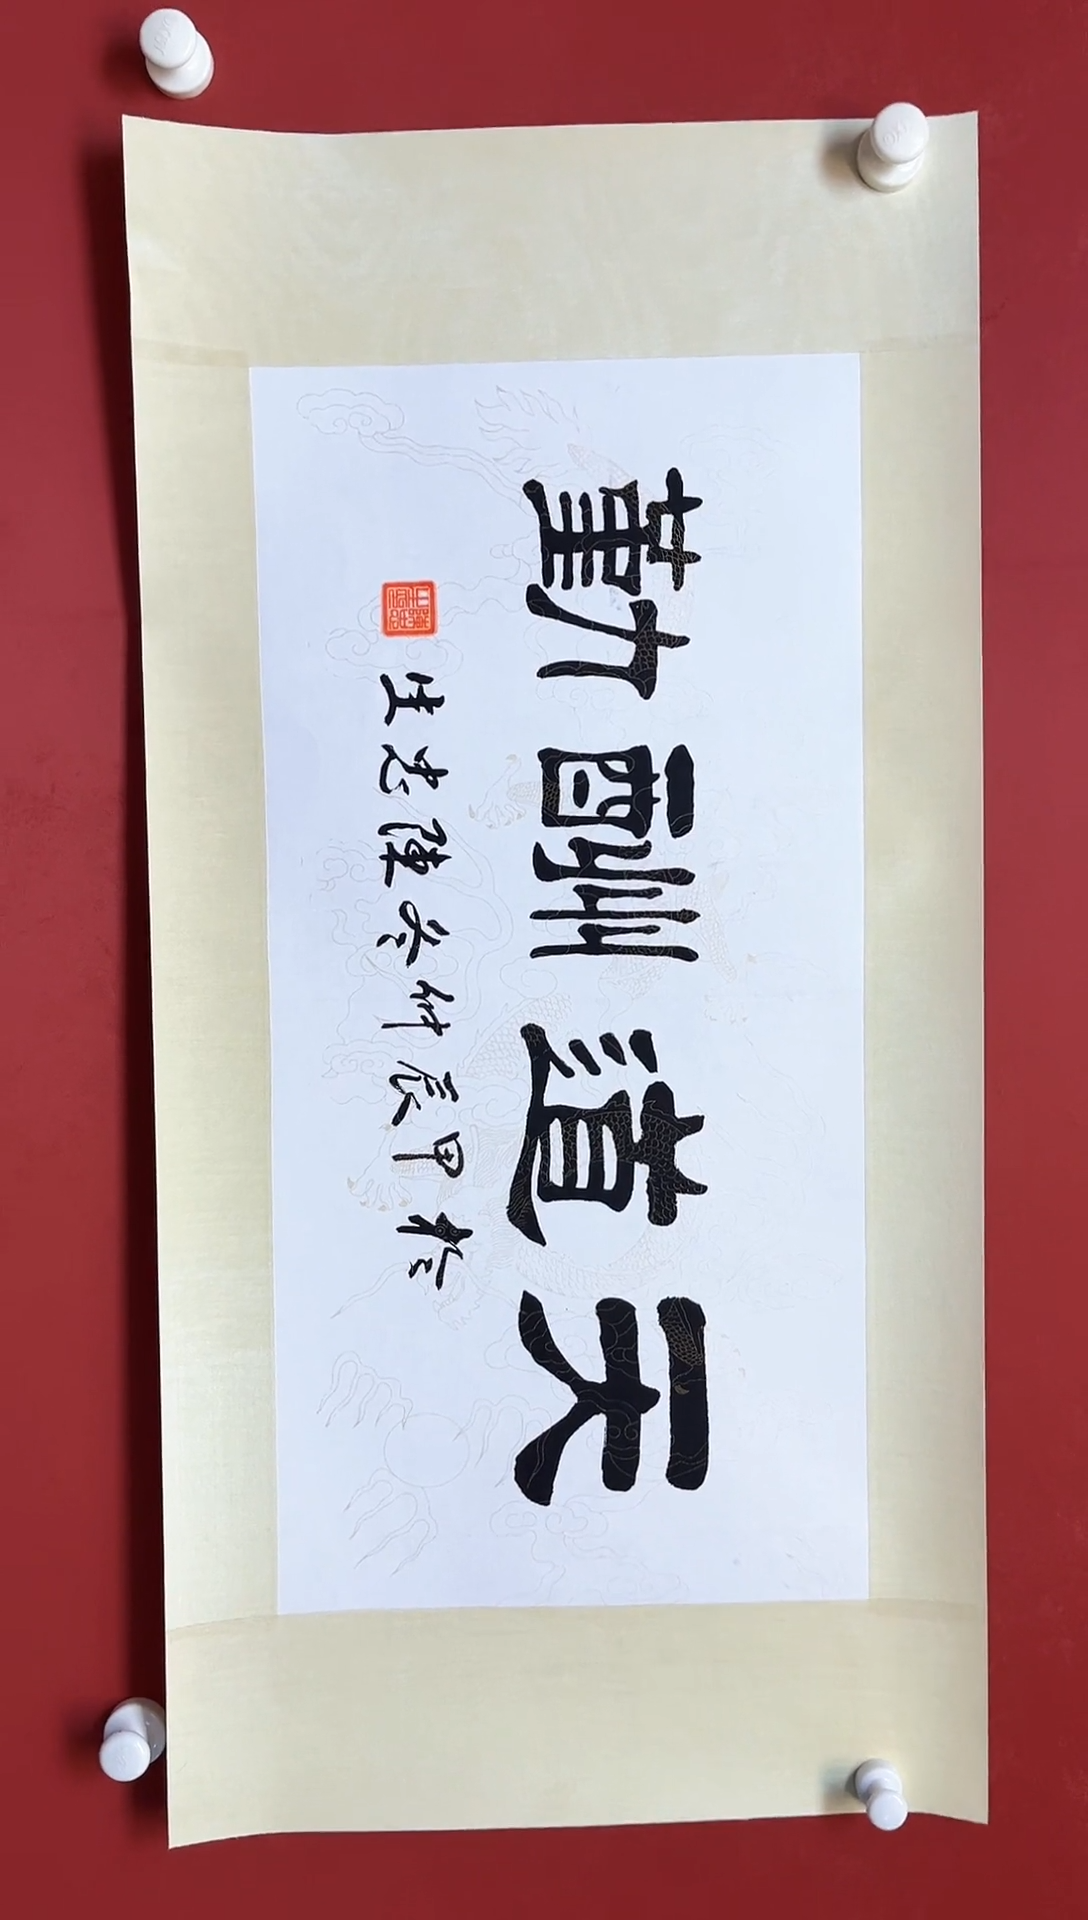 天道酬勤
於甲辰仲冬陳忠生